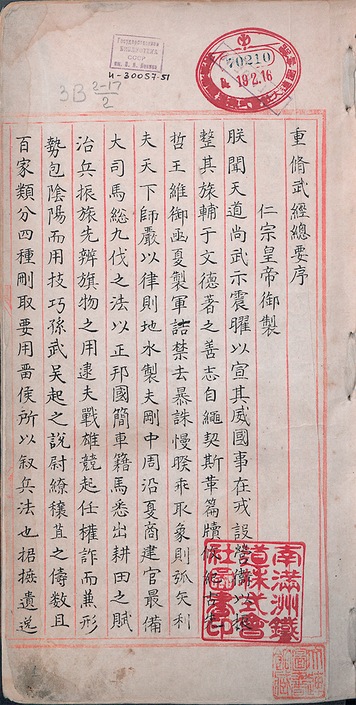 Государственная
БИБЛИОТЕКА
СССР
им. В. И. Ленина
И-30057-51
3В 2-17/2
70210
19.2.16
重脩武經總要序
仁宗皇帝御製
朕聞天道尚武示震曜以宣其威國事在戎設營衛以
整其旅輔于文德著之善志自繩契斯革篇牘
哲王維御函夏製軍詰禁去暴誅慢睽乖取象則弧矢利
夫天下師嚴以律則地水製夫剛中周沿夏商建官最備
大司馬総九伐之法以正邦國簡車籍馬悉出耕田之賦
治兵振旅先辨旗物之用逮夫戰雄競起任權詐而兼形
勢包陰陽而用技巧孫武吳起之說尉繚穰苴之儔數且
百家類分四種剛取要用畱侯所以叙兵法也捃摭遺逸
南滿洲鐵
道株式會
社圖書印